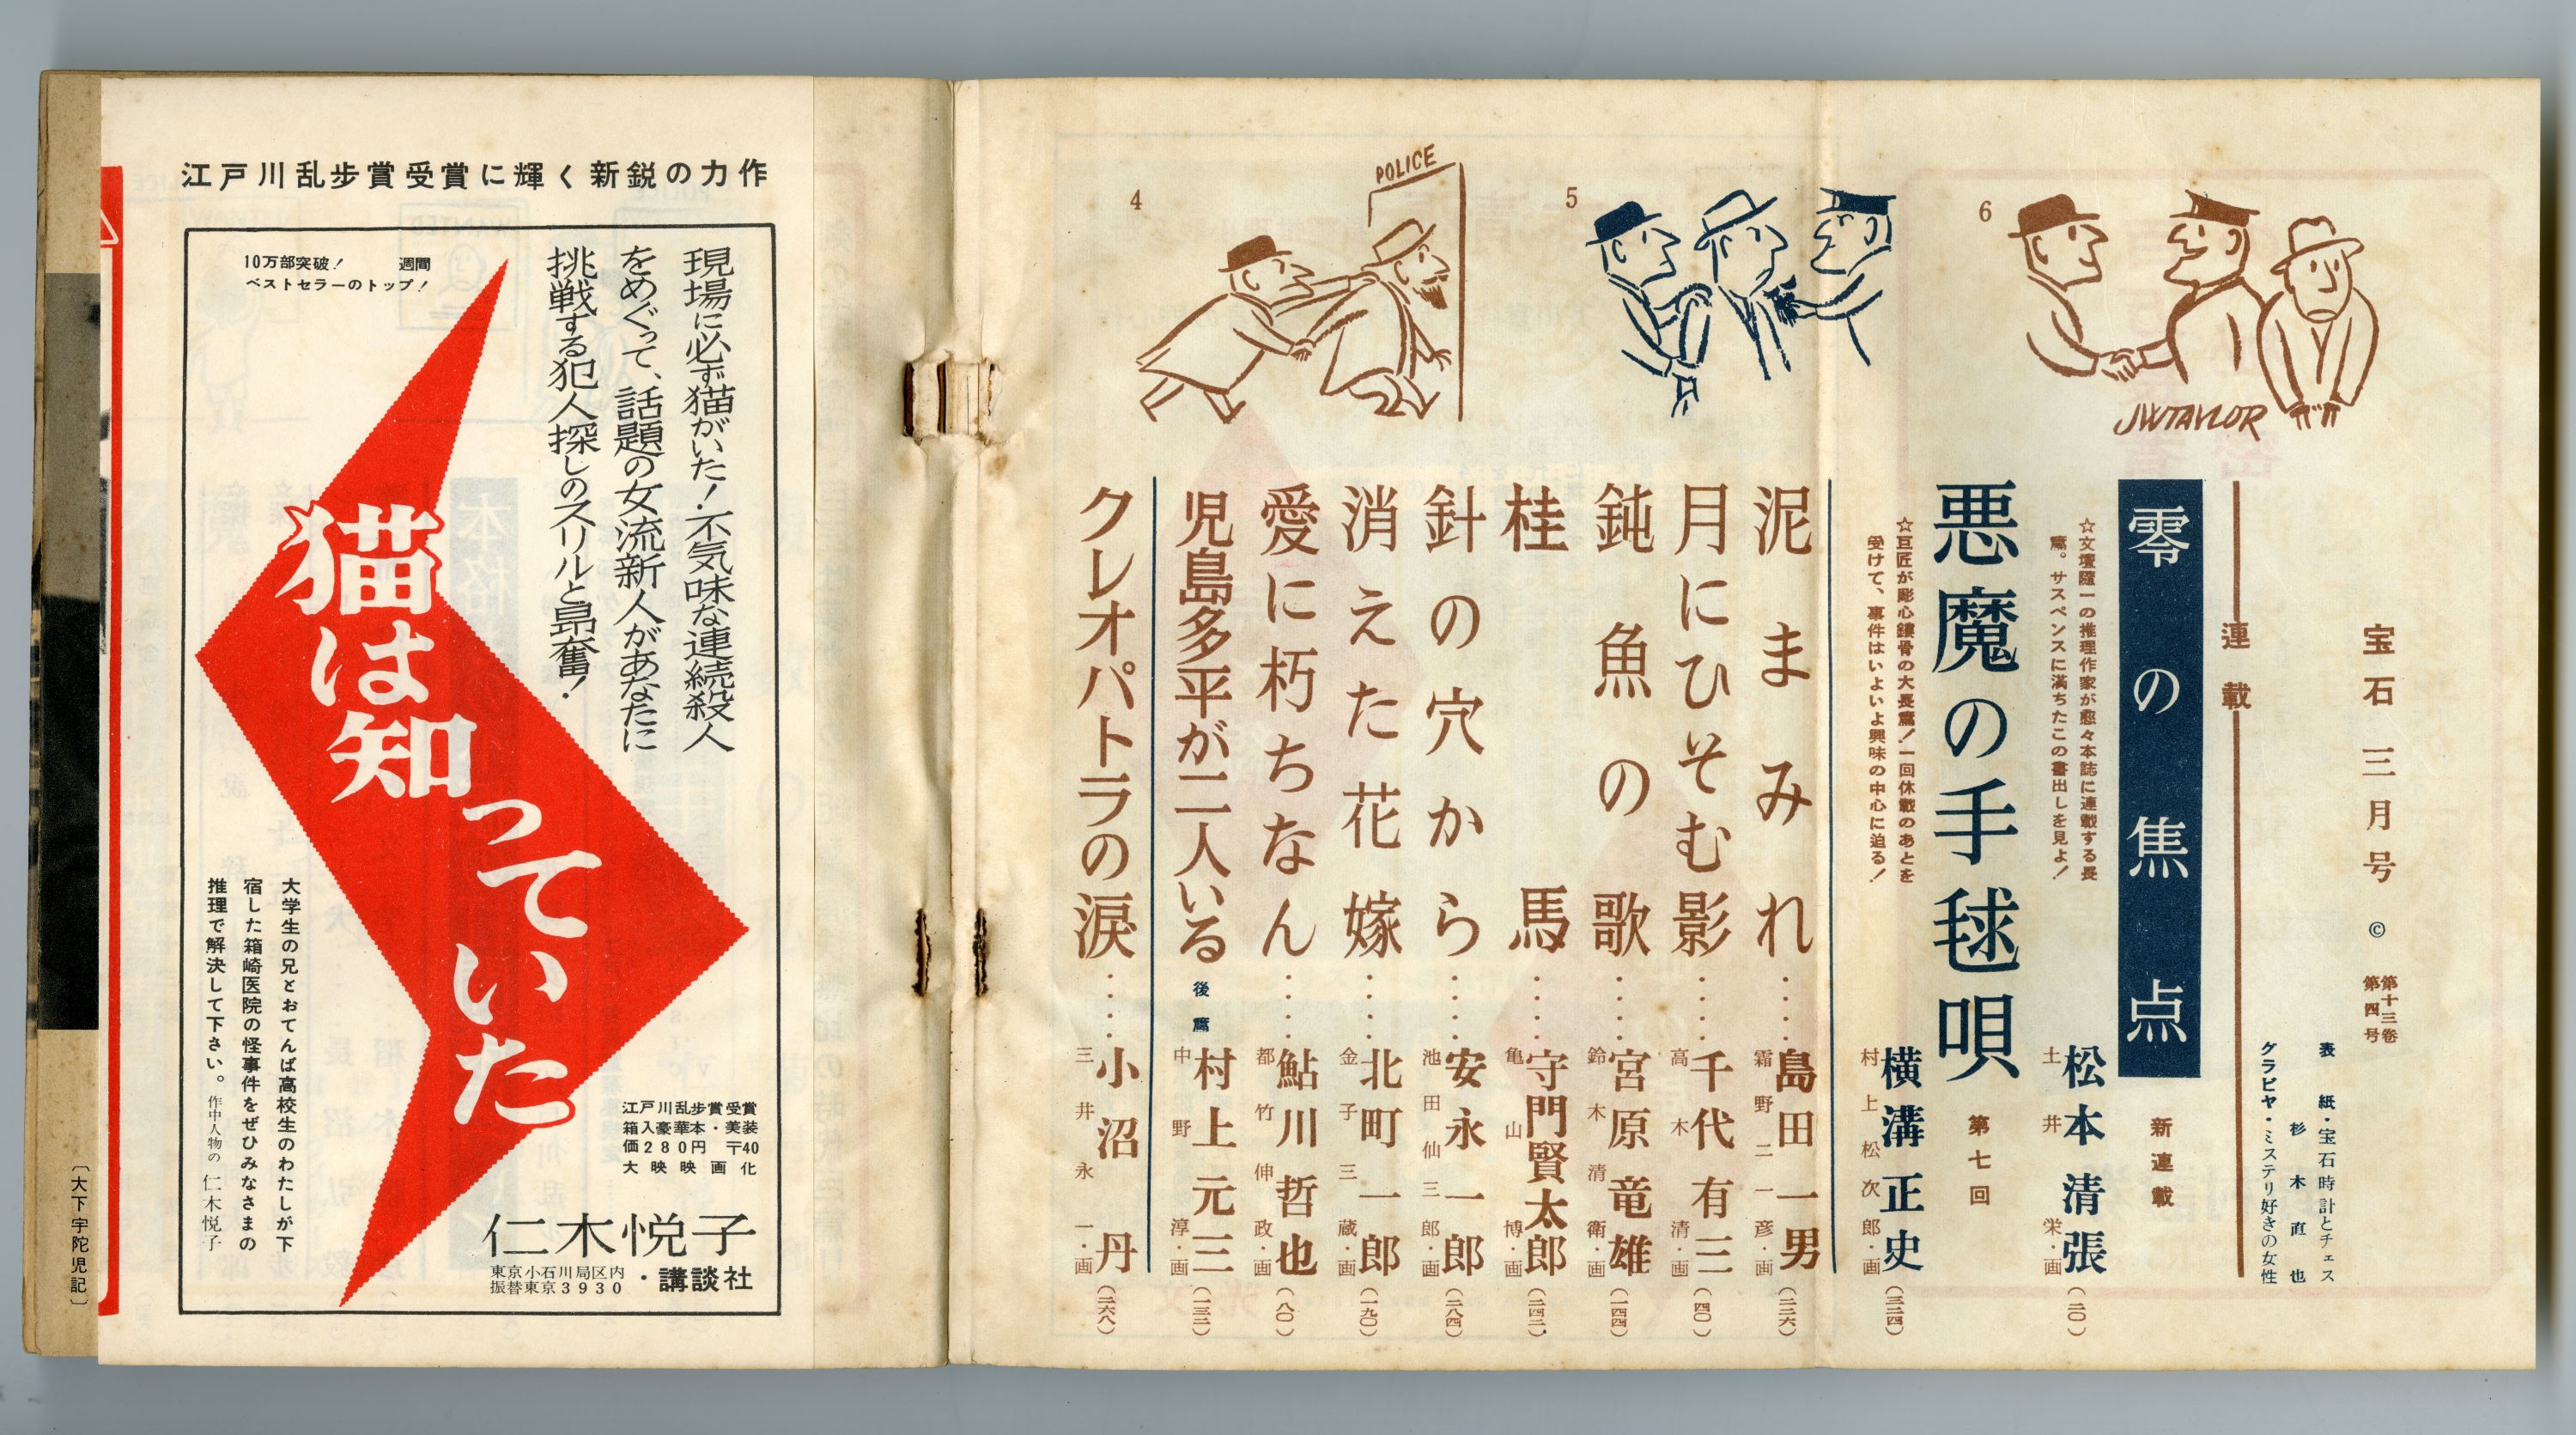 宝石 三月号 ©
第十三巻
第四号
表紙・宝石時計とチェス
杉木直也
グラビヤ・ミステリ好きの女性
連載
零の焦点
新連載
☆文壇随一の推理作家が愈々本誌に連載する長
篇。サスペンスに満ちたこの書出しを見よ!
松本清張
土井栄・画
(二〇)
悪魔の手毬唄
第七回
☆巨匠が彫心鏤骨の大長篇!一回休載のあとを
受けて、事件はいよいよ興味の中心に迫る!
横溝正史
村上松次郎・画
(三一四)
泥まみれ……島田一男
霜野二一彦・画
(二二六)
月にひそむ影……千代有三
高木清・画
(四〇)
鈍魚の歌……宮原竜雄
鈴木清衛・画
(一四四)
桂馬……守門賢太郎
亀山博・画
(二四二)
針の穴から……安永一郎
池田仙三郎・画
(二八四)
消えた花嫁……北町一郎
金子三蔵・画
(一九〇)
愛に朽ちなん……鮎川哲也
都竹伸政・画
(八〇)
児島多平が二人いる 後篇 村上元三
中野淳・画
(一三二)
クレオパトラの涙……小沼丹
三井永一・画
(二六八)
4
POLICE
5
6
JWTAYLOR
江戸川乱歩賞受賞に輝く新鋭の力作
現場に必ず猫がいた!不気味な連続殺人
をめぐって、話題の女流新人があなたに
挑戦する犯人探しのスリルと昂奮!
10万部突破! 週間
ベストセラーのトップ!
猫は知っていた
大学生の兄とおてんば高校生のわたしが下
宿した箱崎医院の怪事件をぜひみなさまの
推理で解決して下さい。 作中人物の 仁木悦子
江戸川乱歩賞受賞
箱入豪華本・美装
価280円 〒40
大映映画化
仁木悦子
東京小石川局区内
振替東京3930
・講談社
〔大下宇陀児記〕